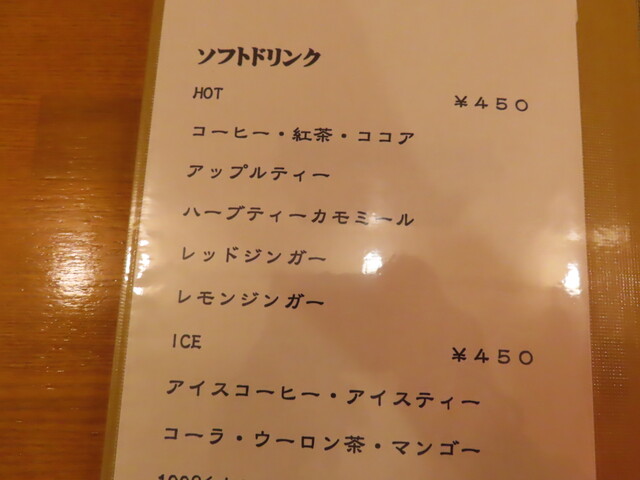 ソフトドリンク
HOT ￥４５０
コーヒー・紅茶・ココア
アップルティー
ハーブティーカモミール
レッドジンガー
レモンジンガー
ICE ￥４５０
アイスコーヒー・アイスティー
コーラ・ウーロン茶・マンゴー